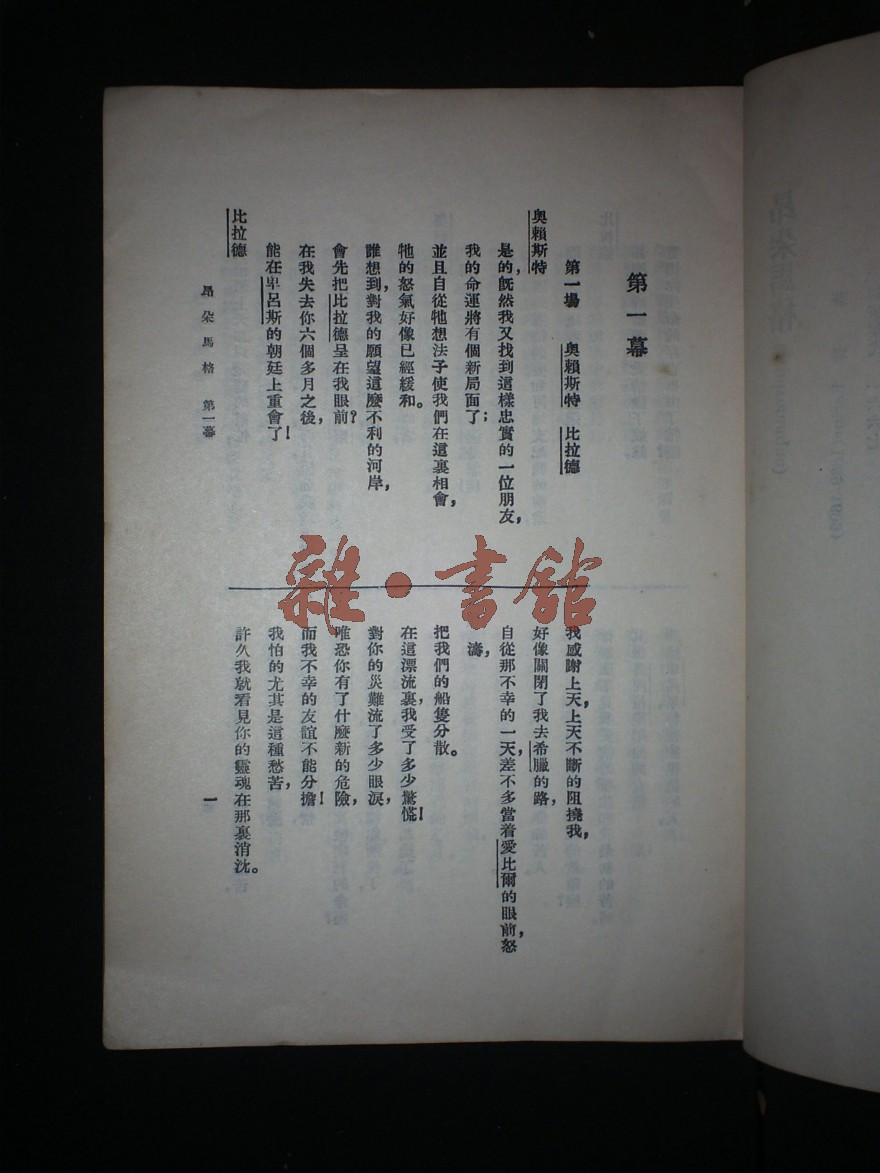 第一幕
第一場 奧賴斯特 比拉德
奧賴斯特
是的，旣然我又找到這樣忠實的一位朋友，
我的命運將有個新局面了；
並且自從牠想法子使我們在這裏相會，
牠的怒氣好像已經緩和。
誰想到，對我的願望這麼不利的河岸，
會先把比拉德呈在我眼前？
在我失去你六個多月之後，
能在卑呂斯的朝廷上重會了！
比拉德
我感謝上天，上天不斷的阻撓我，
好像關閉了我去希臘的路，
自從那不幸的一天，差不多當着愛比爾的眼前，怒
濤，
把我們的船隻分散。
在這漂流裏，我受了多少驚慌！
對你的災難流了多少眼淚，
唯恐你有了什麼新的危險，
而我不幸的友誼不能分擔！
我怕的尤其是這種愁苦，
許久我就看見你的靈魂在那裏消沈。
昂朵馬格 第一幕
一
雜·書館